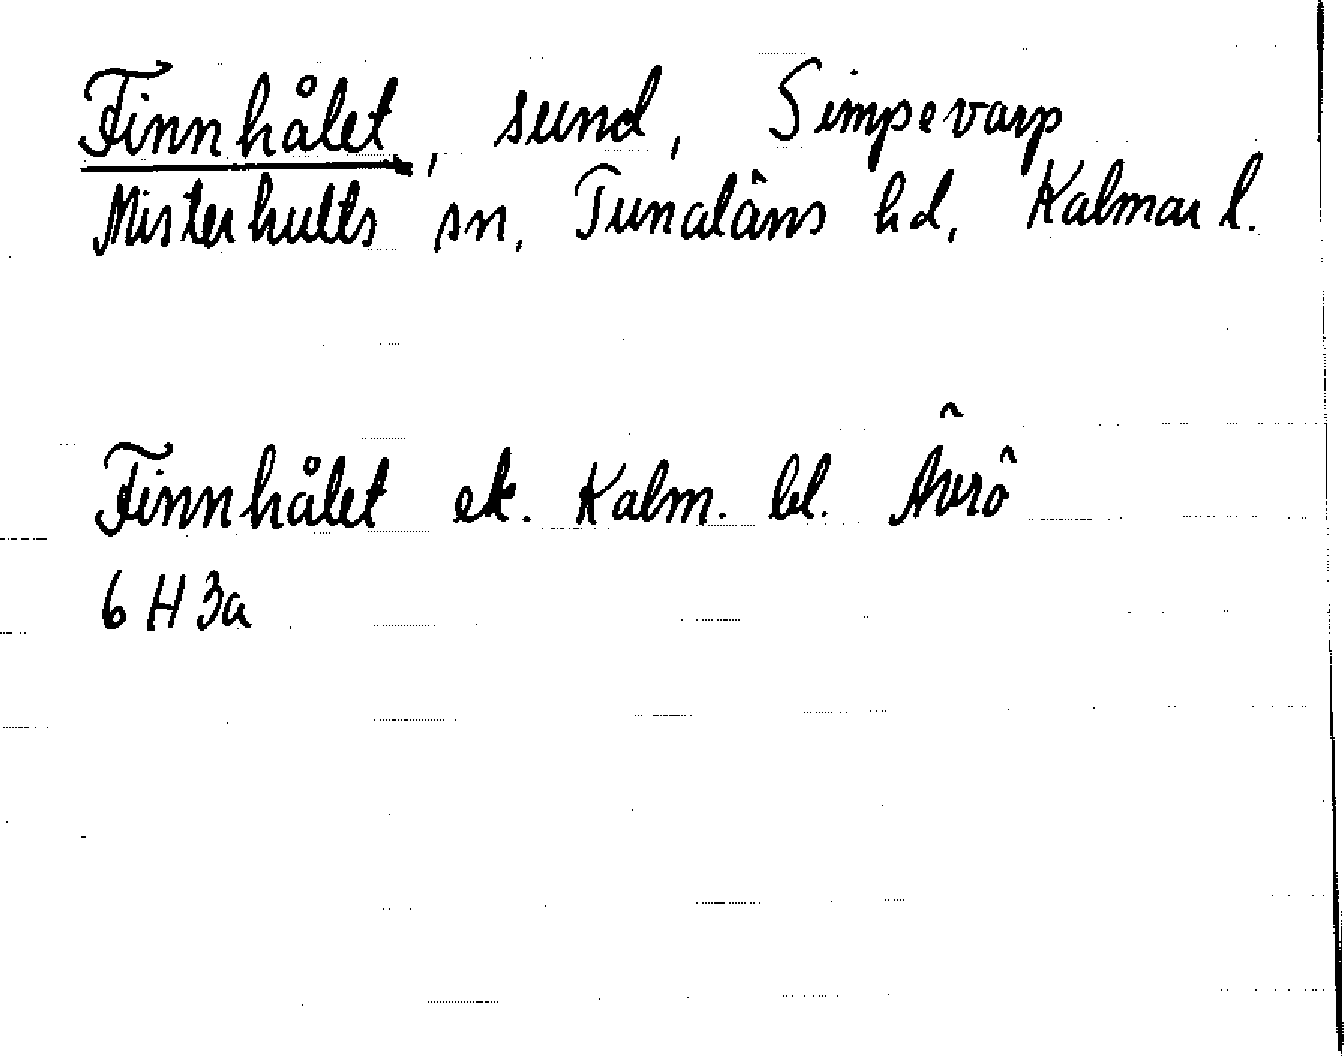 Finnhålet, sund, Simpevarp
Misterhults sn, Tunaläns hd, Kalmar l.
Finnhålet ek. Kalm. bl. Ävrö
6 H 3a